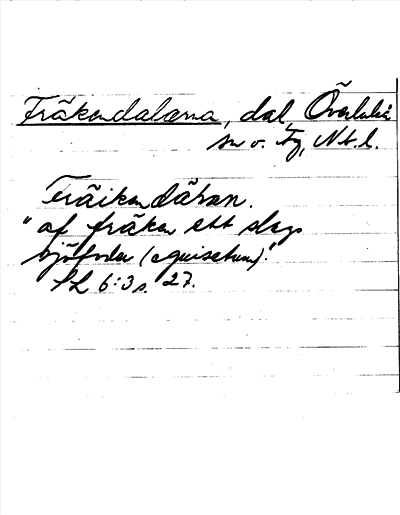 Fräkendalarna, dal, Överluleå
sn o. Tg, Nb. l.
Fräikendäran.
"af fräken ett slags
sjöfoder (equisetum)."
SL 6:3 s. 27.